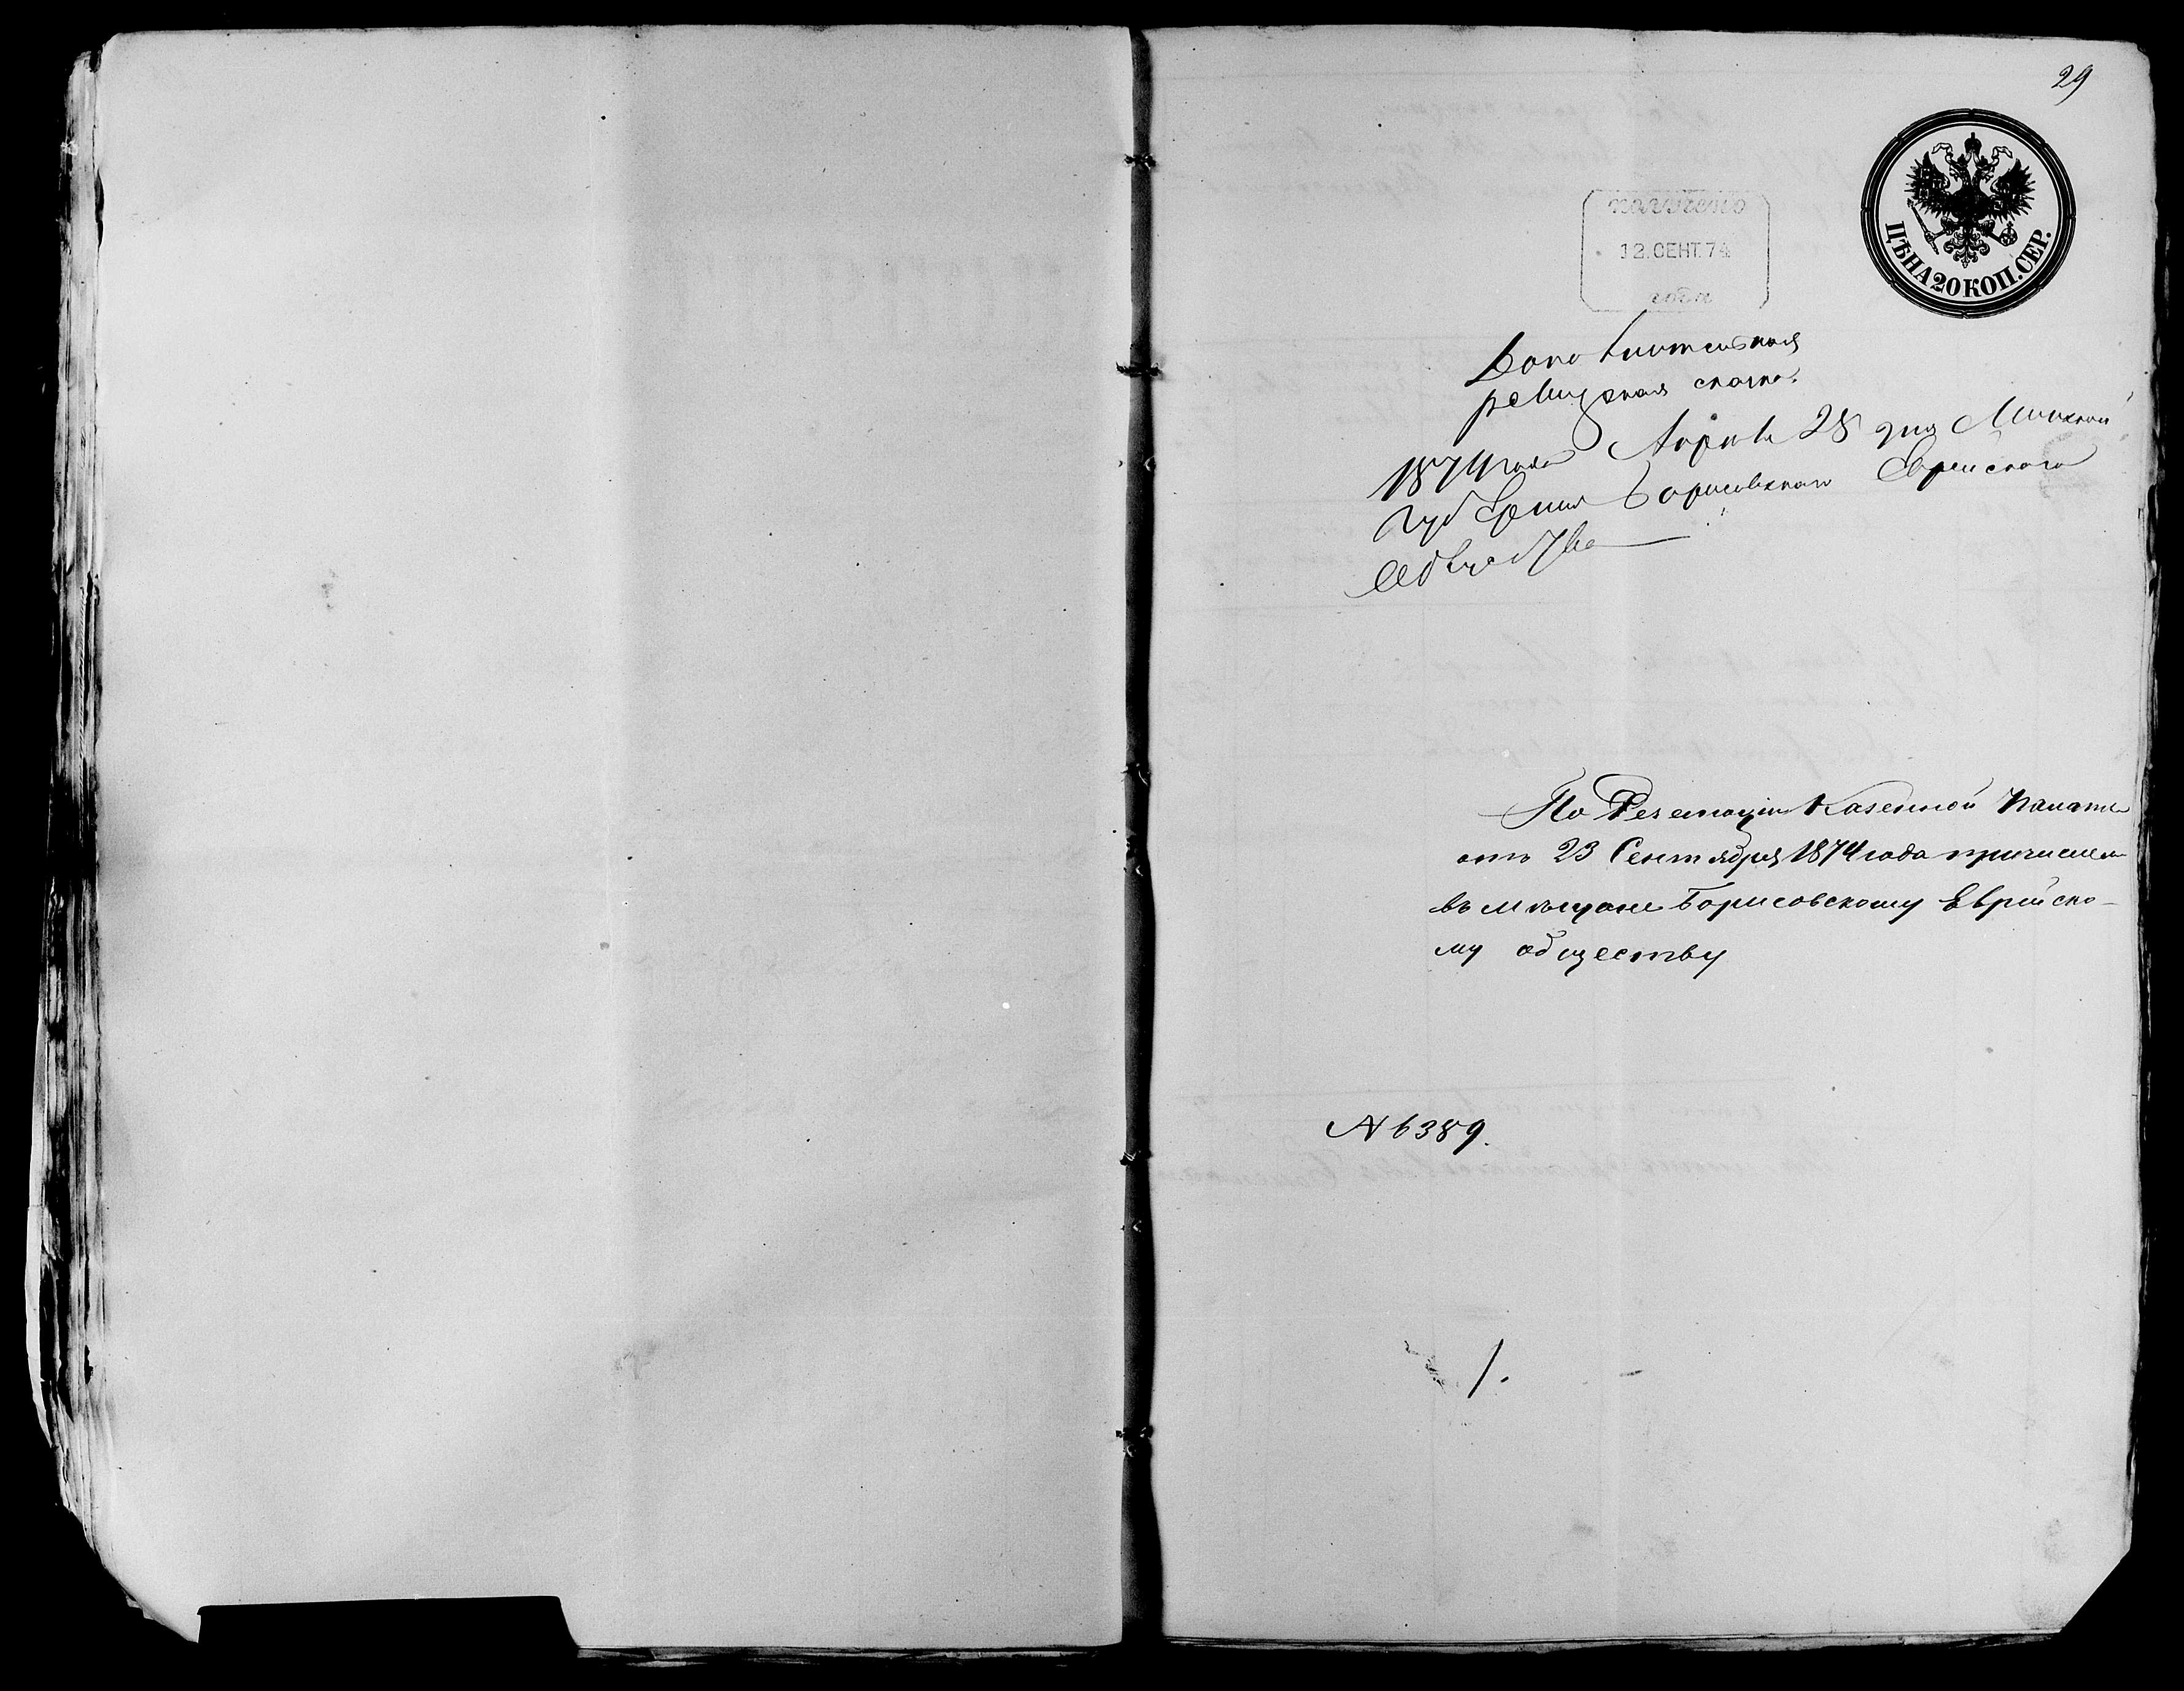 29
ЦѢНА 20 КОП. СЕР.
получено
12. СЕНТ. 74
года
Дополнительная
ревизская сказка.
1874 года Апреля 28 дня Минской
Губернии Борисовскаго Еврейскаго
Общества
По Резолюціи Казенной Палаты
отъ 23 Сентября 1874 года причислен
въ мѣщане Борисовскому Еврейско-
му обществу
№ 6389.
1.